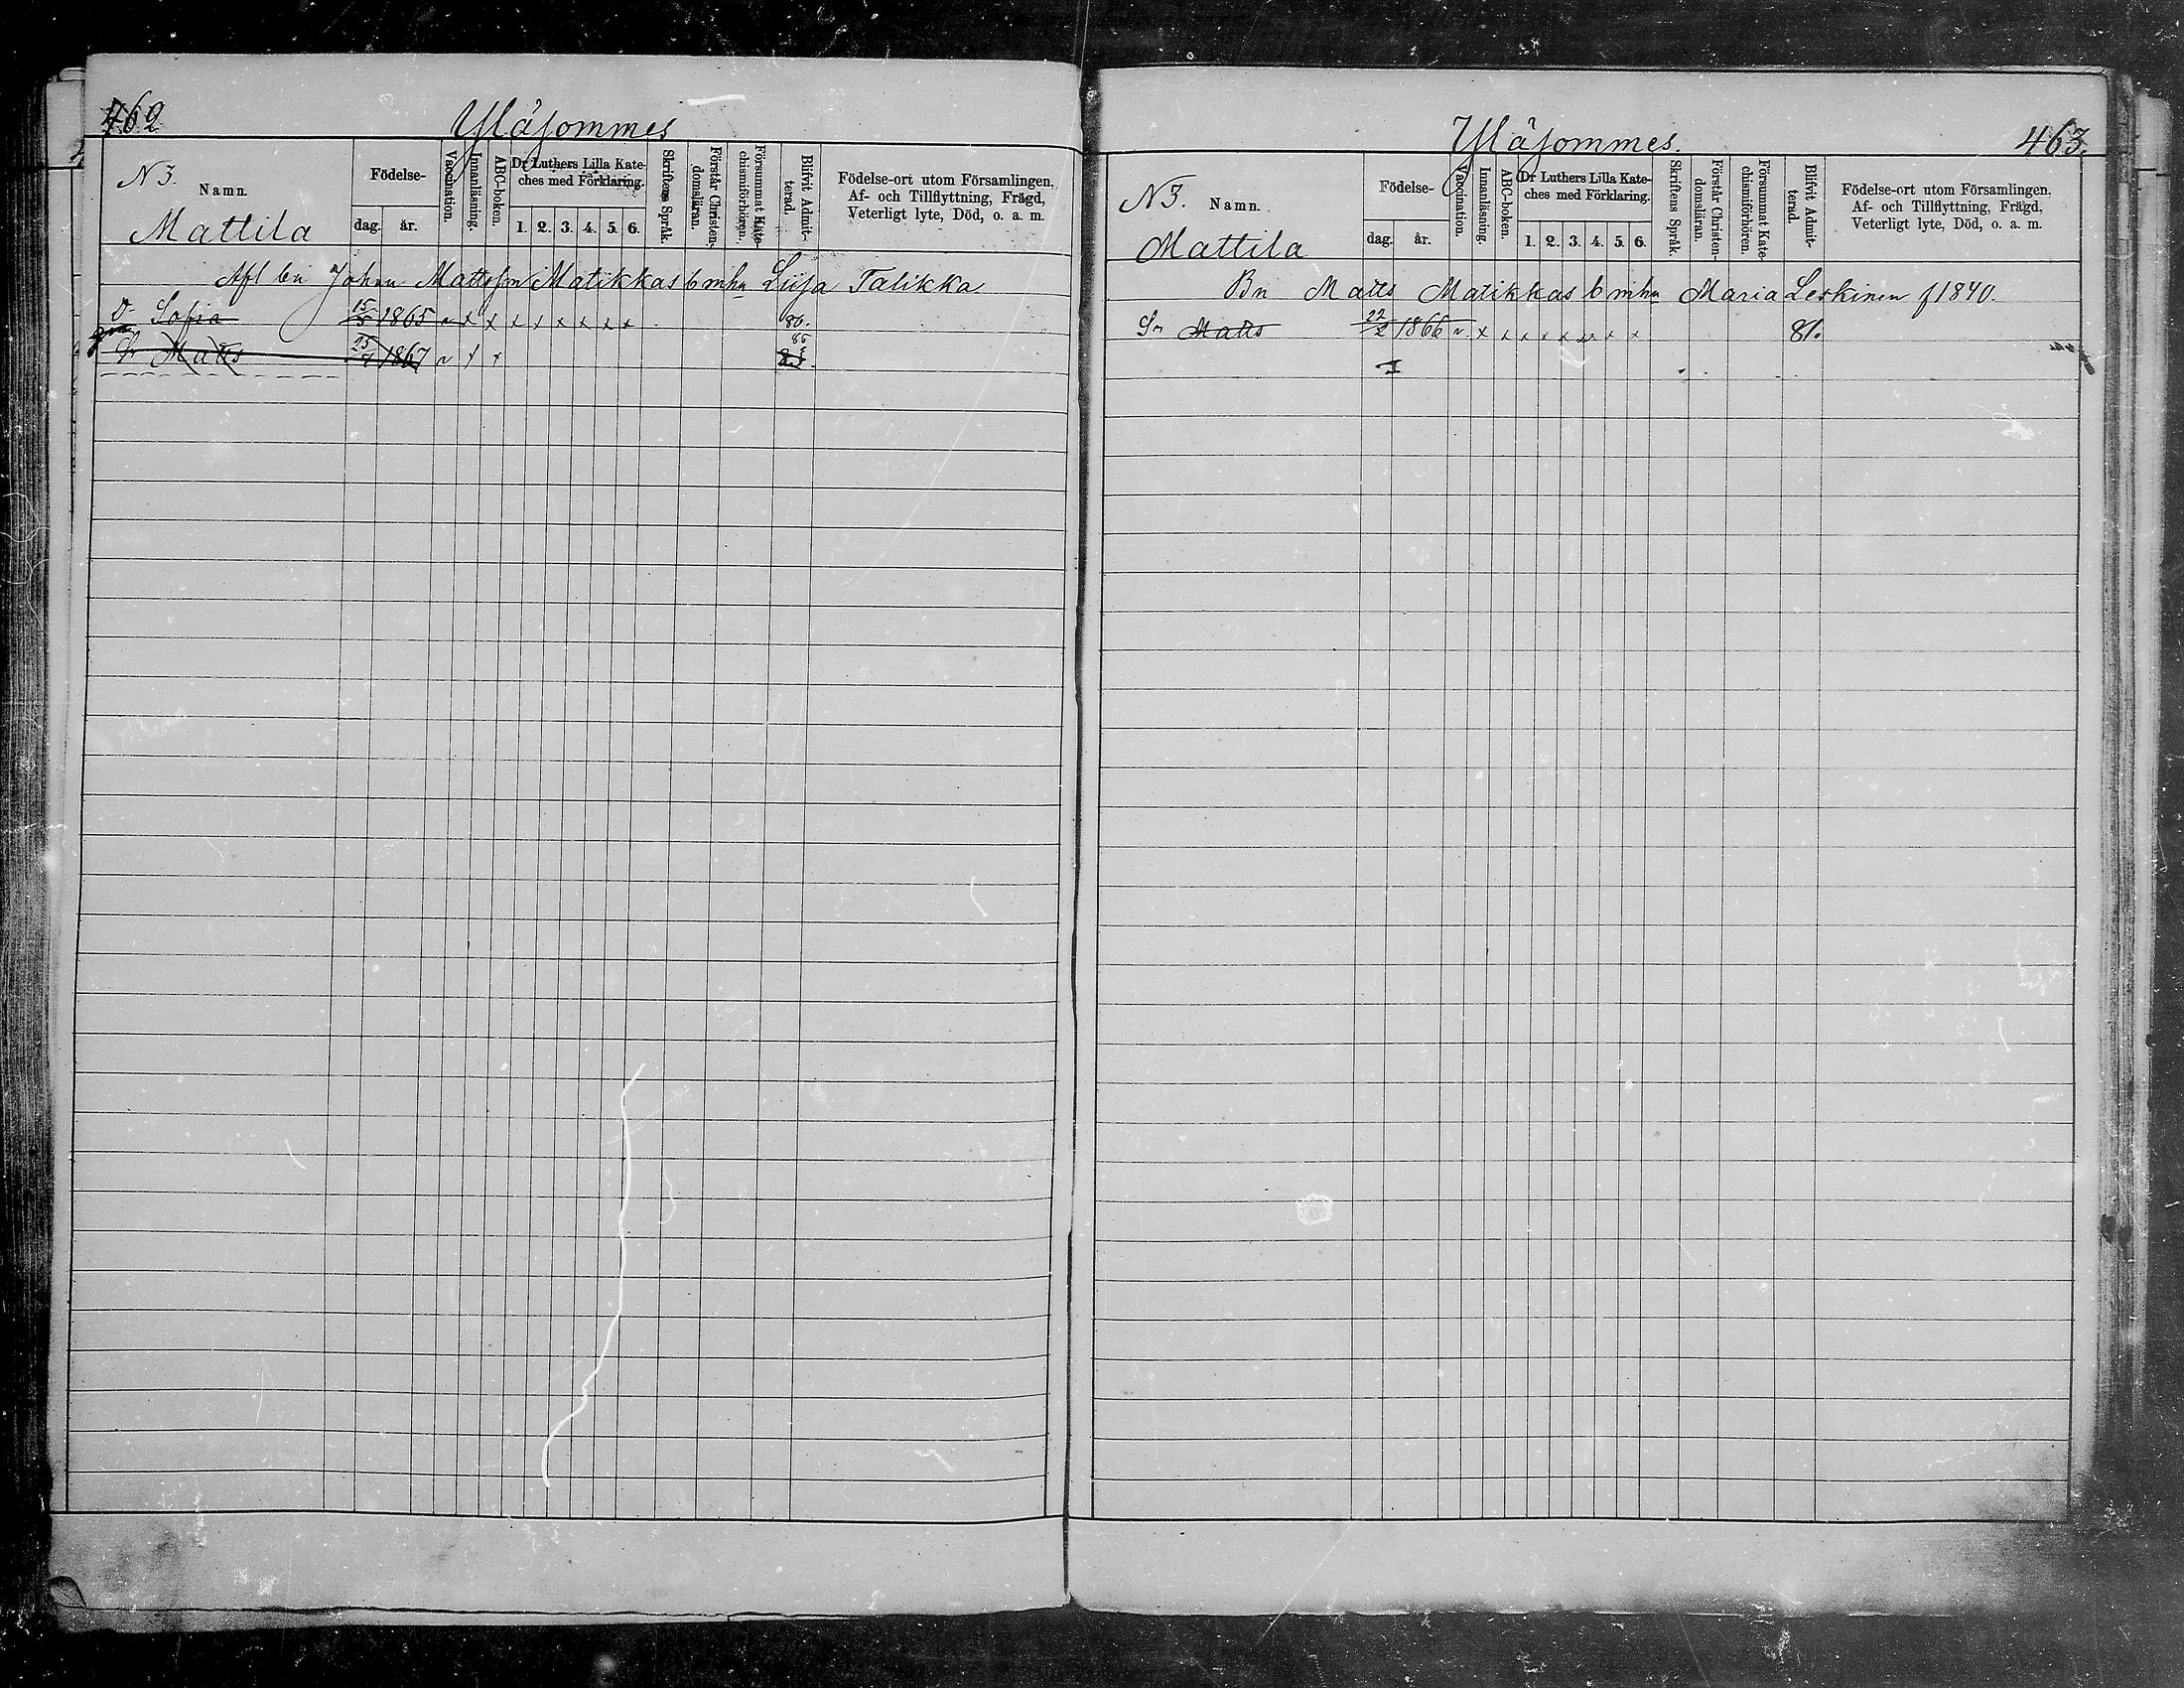 462
Yläsommes
N 3.
Namn.
Mattila
Födelse-
dag.
år.
Vaccination.
Innanläsning.
ABC-boken.
Dr Luthers Lilla Kate-
ches med Förklaring.
1. 2. 3. 4. 5. 6.
Skriftens Språk.
Förstår Christen-
domsläran.
Försummat Kate-
chismiförhören.
Blifvit Admit-
terad.
Födelse-ort utom Församlingen,
Af- och Tillflyttning, Frägd,
Veterligt lyte, Död, o. a. m.
Afl bn Johan Mattsson Matikkas b mhu Liisa Talikka
D. Sofia 15/5 1865 x x x x x x x x 80.
Sr Matts 1867 x x 86
Yläsommes.
463.
N 3.
Namn.
Mattila
Födelse-
dag.
år.
Vaccination.
Innanläsning.
ABC-boken.
Dr Luthers Lilla Kate-
ches med Förklaring.
1. 2. 3. 4. 5. 6.
Skriftens Språk.
Förstår Christen-
domsläran.
Försummat Kate-
chismiförhören.
Blifvit Admit-
terad.
Födelse-ort utom Församlingen,
Af- och Tillflyttning, Frägd,
Veterligt lyte, Död, o. a. m.
Bn Matts Matikkas b mhu Maria Leskinen f 1840.
Sr Matts 22/2 1866 x x x x x x x x 81.